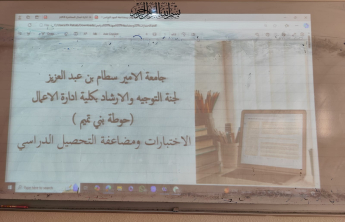 بسم الله الرحمن الرحيم
جامعة الامير سطام بن عبد العزيز
لجنة التوجيه والارشاد بكلية ادارة الاعمال
(حوطة بني تميم )
الاختبارات ومضاعفة التحصيل الدراسي